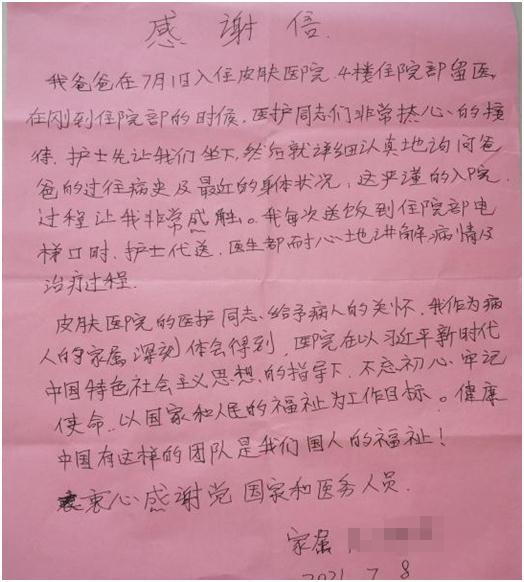 感谢信
我爸爸在7月1日入住皮肤医院.4楼住院部留医,
在刚到住院部的时候,医护同志们非常热心的接
待,护士先让我们坐下,然后就详细认真地询问爸
爸的过往病史及最近的身体状况,这严谨的入院
过程让我非常感触。我每次送饭到住院部电
梯口时,护士代送,医生都耐心地讲解病情及
治疗过程.
皮肤医院的医护同志,给予病人的关怀,我作为病
人的家属深刻体会得到,医院在以习近平新时代
中国特色社会主义思想的指导下,不忘初心,牢记
使命,以国家和人民的福祉为工作目标。健康
中国有这样的团队是我们国人的福祉!
衷心感谢党国家和医务人员.
家属
2021.7.8